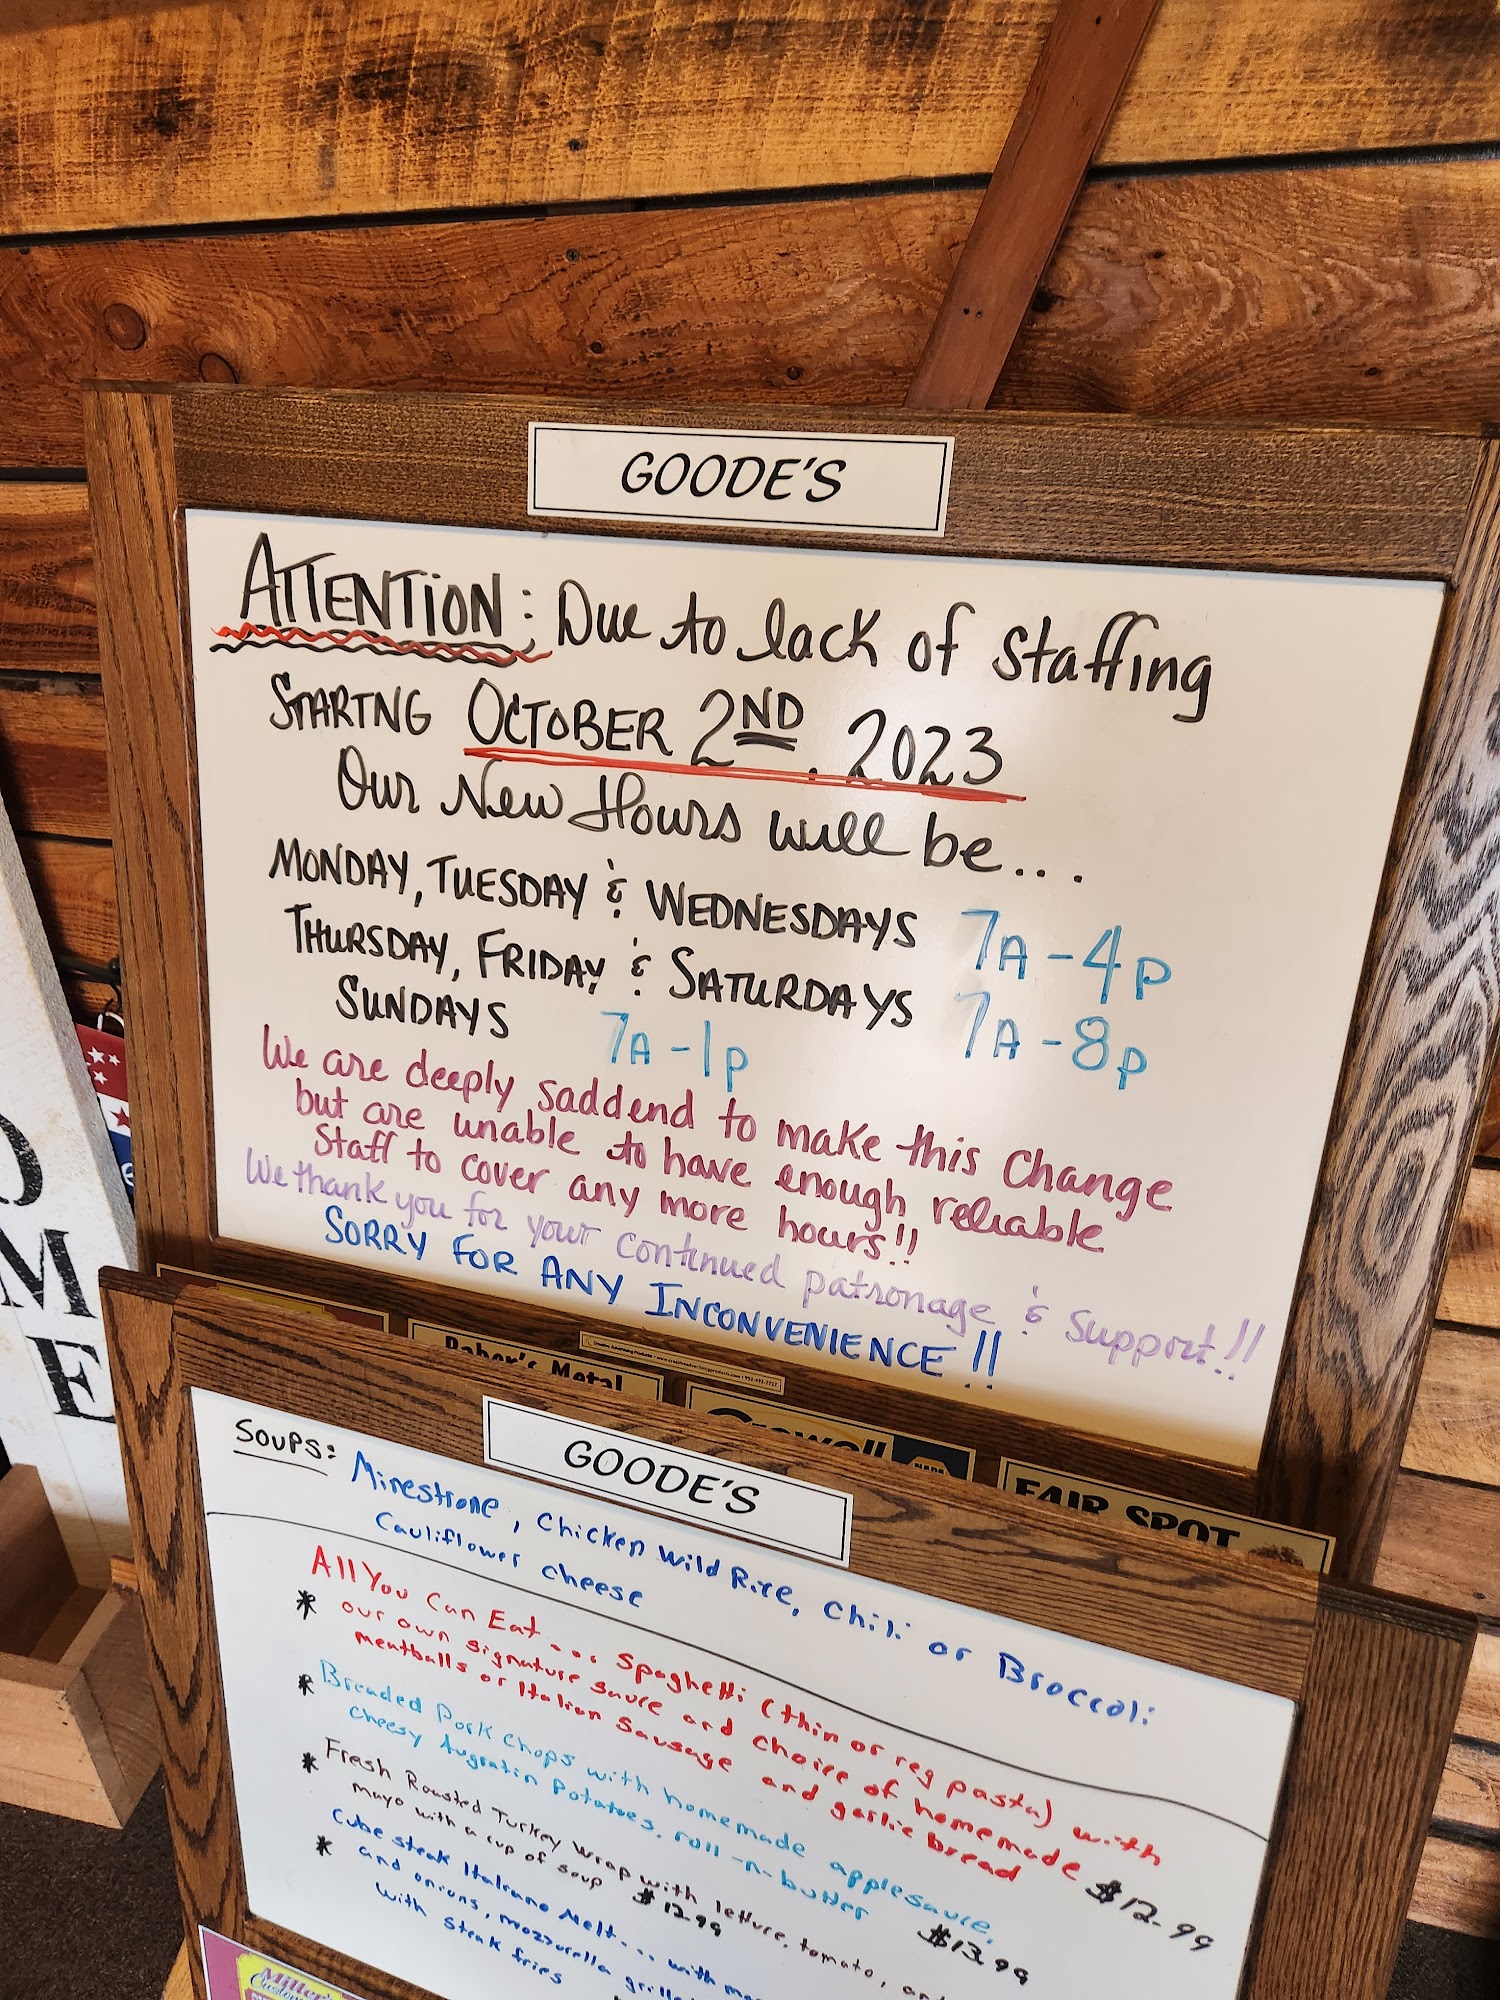 GOODE'S
ATTENTION: Due to lack of staffing
STARTNG OCTOBER 2ND, 2023
Our New Hours will be...
MONDAY, TUESDAY & WEDNESDAYS 7A-4P
THURSDAY, FRIDAY & SATURDAYS 7A-8P
SUNDAYS 7A-1P
We are deeply saddend to make this Change
but are unable to have enough reliable
staff to cover any more hours!!
We thank you for your continued patronage & support!!
SORRY FOR ANY INCONVENIENCE!!
Raber's Metal
Crowell
NAPA
FAIR SPOT
GOODE'S
SOUPS: Minestrone, Chicken Wild Rice, Chili or Broccoli
Cauliflower cheese
All You Can Eat... Spaghetti (thin or reg pasta) with
* our own signature sauce and choice of homemade
meatballs or Italian Sausage and garlic bread $12.99
* Breaded Pork Chops with homemade applesauce,
cheesy Augratin Potatoes, roll-n-butter $13.99
* Fresh Roasted Turkey Wrap with lettuce, tomato, and
mayo with a cup of soup $12.99
* Cube steak Italiano Melt... with
and onions, mozzurella
with steak fries
O
M
E
Miller's